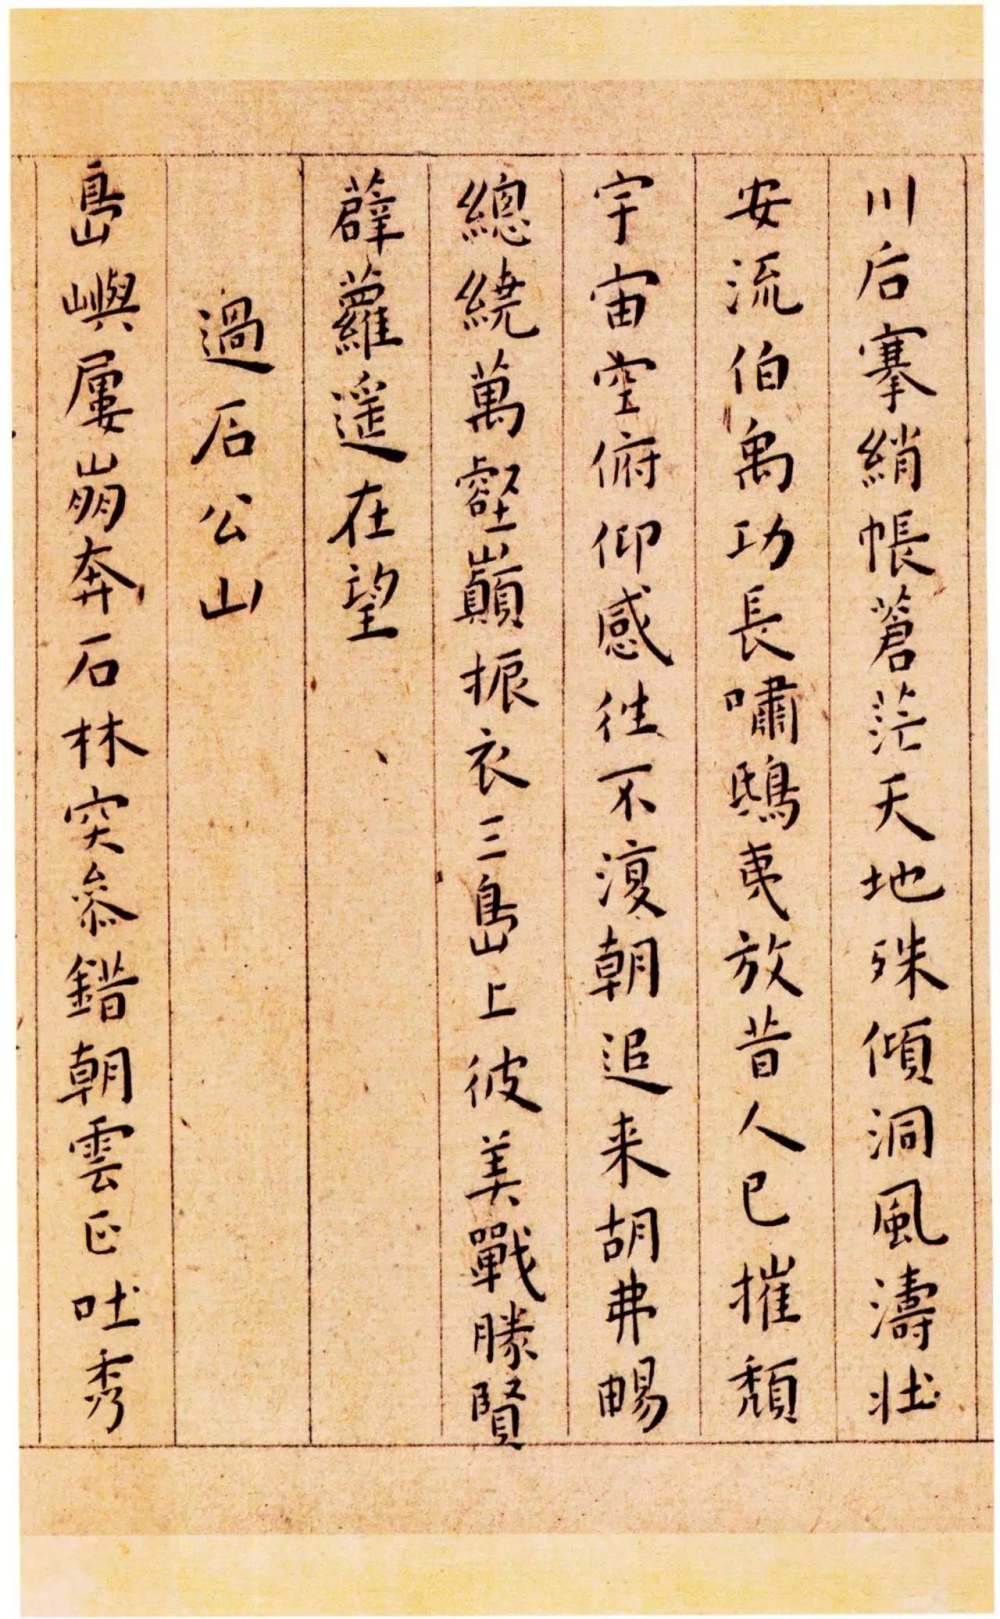 川后搴綃帳蒼茫天地殊傾洞風濤壯
安流伯禹功長嘯鴟夷放昔人已摧頹
宇宙空俯仰感往不復朝追来胡弗暢
總繞萬壑巔振衣三島上彼美戰勝賢
薜蘿遥在望
過石公山
島嶼屢崩奔石林突叅錯朝雲正吐秀